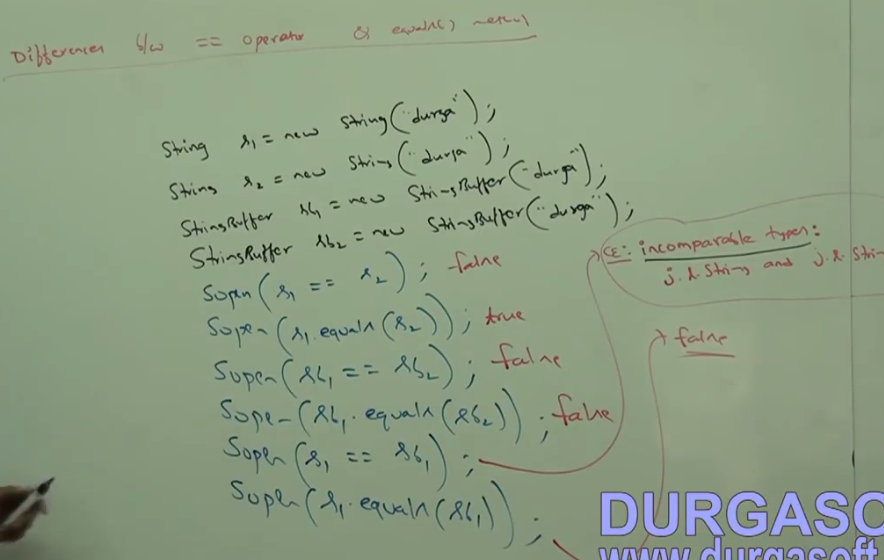 Differences b/w == operator & equals() method
String s1 = new String("durga");
String s2 = new String("durga");
StringBuffer sb1 = new StringBuffer("durga");
StringBuffer sb2 = new StringBuffer("durga");
Sopln(s1 == s2); false
Sopln(s1.equals(s2)); true
Sopln(sb1 == sb2); false
Sopln(sb1.equals(sb2)); false
Sopln(s1 == sb1);
CE: incomparable types:
j.l.String and j.l.Stri
Sopln(s1.equals(sb1));
false
DURGASO
www.durgasoft